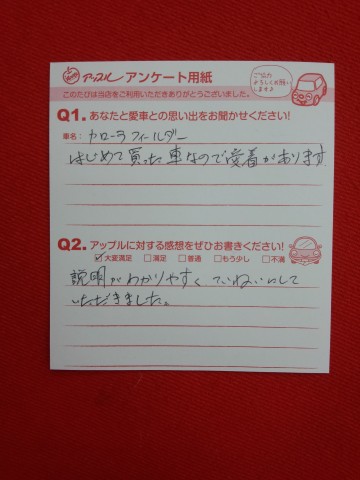 アップル アンケート用紙
ご協力
よろしくお願い
します♪
このたびは当店をご利用いただきありがとうございました。
Q1. あなたと愛車との思い出をお聞かせください!
車名： カローラフィールダー
はじめて買った車なので愛着があります
Q2. アップルに対する感想をぜひお書きください!
☑大変満足 □満足 □普通 □もう少し □不満
説明がわかりやすくていねいにして
いただきました。